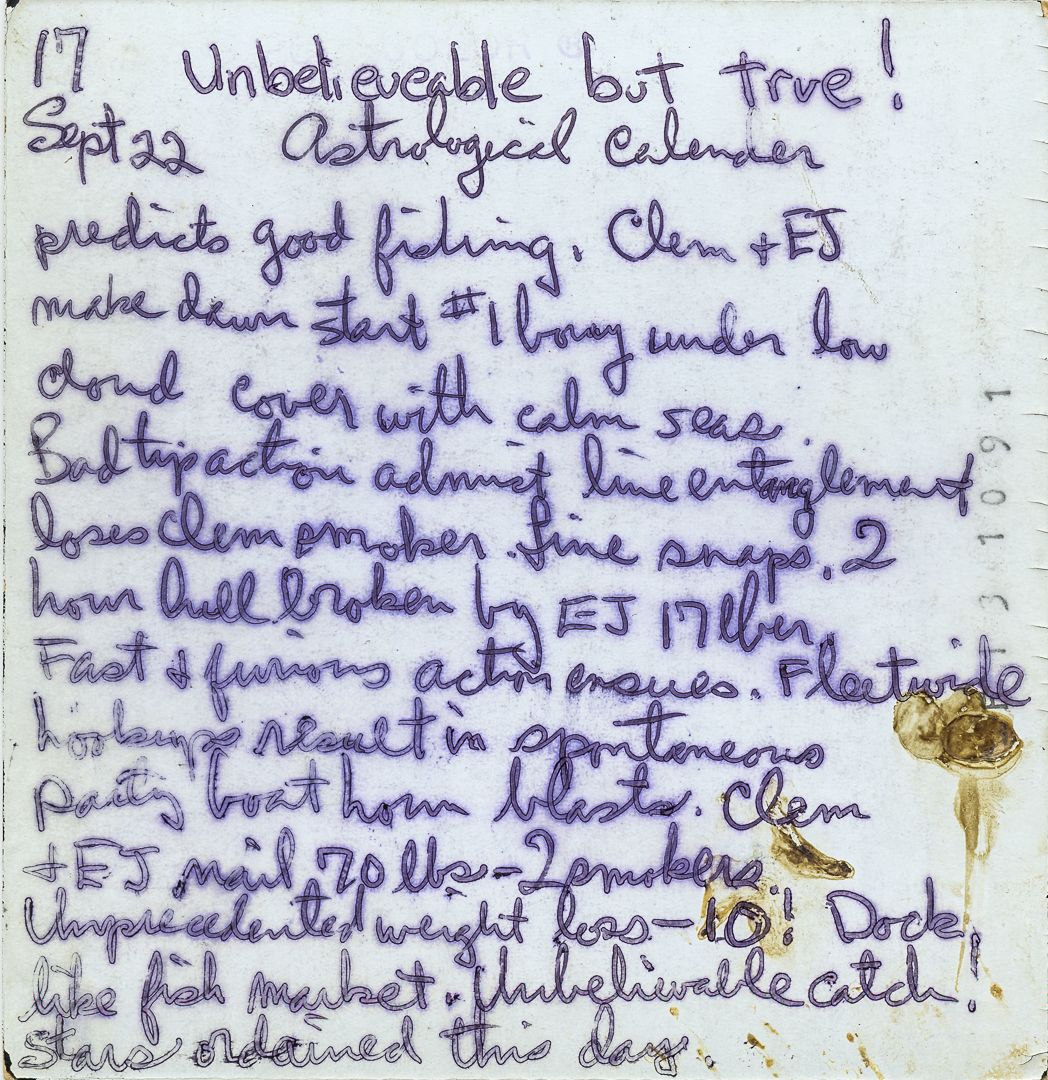 17 Unbelieveable but true!
Sept 22 Astrological Calender
predicts good fishing. Clem + EJ
make dawn start #1 bouy under low
cloud cover with calm seas.
Bad tip action admist line entanglement
loses Clem smoker. Line snaps. 2
hour lull broken by EJ 17 lber.
Fast & furious action ensues. Fleetwide
hookups result in spontaneous
party boat horn blasts. Clem
+ EJ nail 70 lbs - 2 smokers.
Unprecedented weight loss - 10! Dock
like fish market. Unbelievable catch!
Stars ordained this day.
3 1091